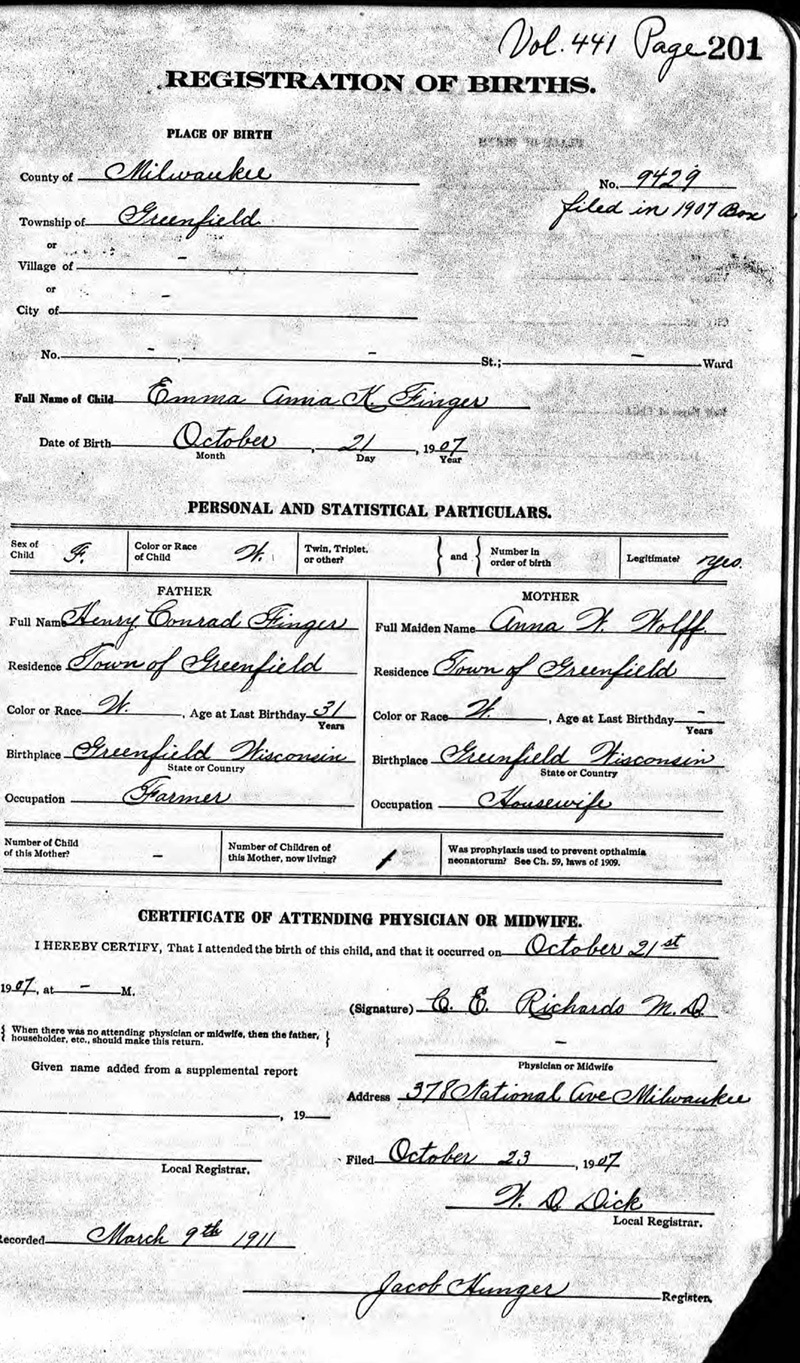 Vol. 441 Page 201
REGISTRATION OF BIRTHS.
PLACE OF BIRTH
County of Milwaukee
No. 9429
Township of Greenfield
filed in 1907 Box
or
Village of -
or
City of -
No. - , - St.; - Ward
Full Name of Child Emma Anna K. Finger
Date of Birth October , 21 , 1907
Month Day Year
PERSONAL AND STATISTICAL PARTICULARS.
Sex of Child F. Color or Race of Child W. Twin, Triplet, or other? } and { Number in order of birth Legitimate? yes.
FATHER
Full Name Henry Conrad Finger
Residence Town of Greenfield
Color or Race W. , Age at Last Birthday 31
Years
Birthplace Greenfield Wisconsin
State or Country
Occupation Farmer
MOTHER
Full Maiden Name Anna W. Wolff.
Residence Town of Greenfield
Color or Race W. , Age at Last Birthday -
Years
Birthplace Greenfield Wisconsin
State or Country
Occupation Housewife
Number of Child
of this Mother? -
Number of Children of
this Mother, now living? 1
Was prophylaxis used to prevent opthalmia
neonatorum? See Ch. 59, laws of 1909.
CERTIFICATE OF ATTENDING PHYSICIAN OR MIDWIFE.
I HEREBY CERTIFY, That I attended the birth of this child, and that it occurred on October 21st
1907, at - M.
(Signature) C. E. Richards M.D.
{ When there was no attending physician or midwife, then the father,
householder, etc., should make this return. }
-
Physician or Midwife
Given name added from a supplemental report
Address 378 National Ave Milwaukee
, 19
Filed October 23 , 1907
Local Registrar.
W. D. Dick
Local Registrar.
Recorded March 9th 1911
Jacob Hunger Register.